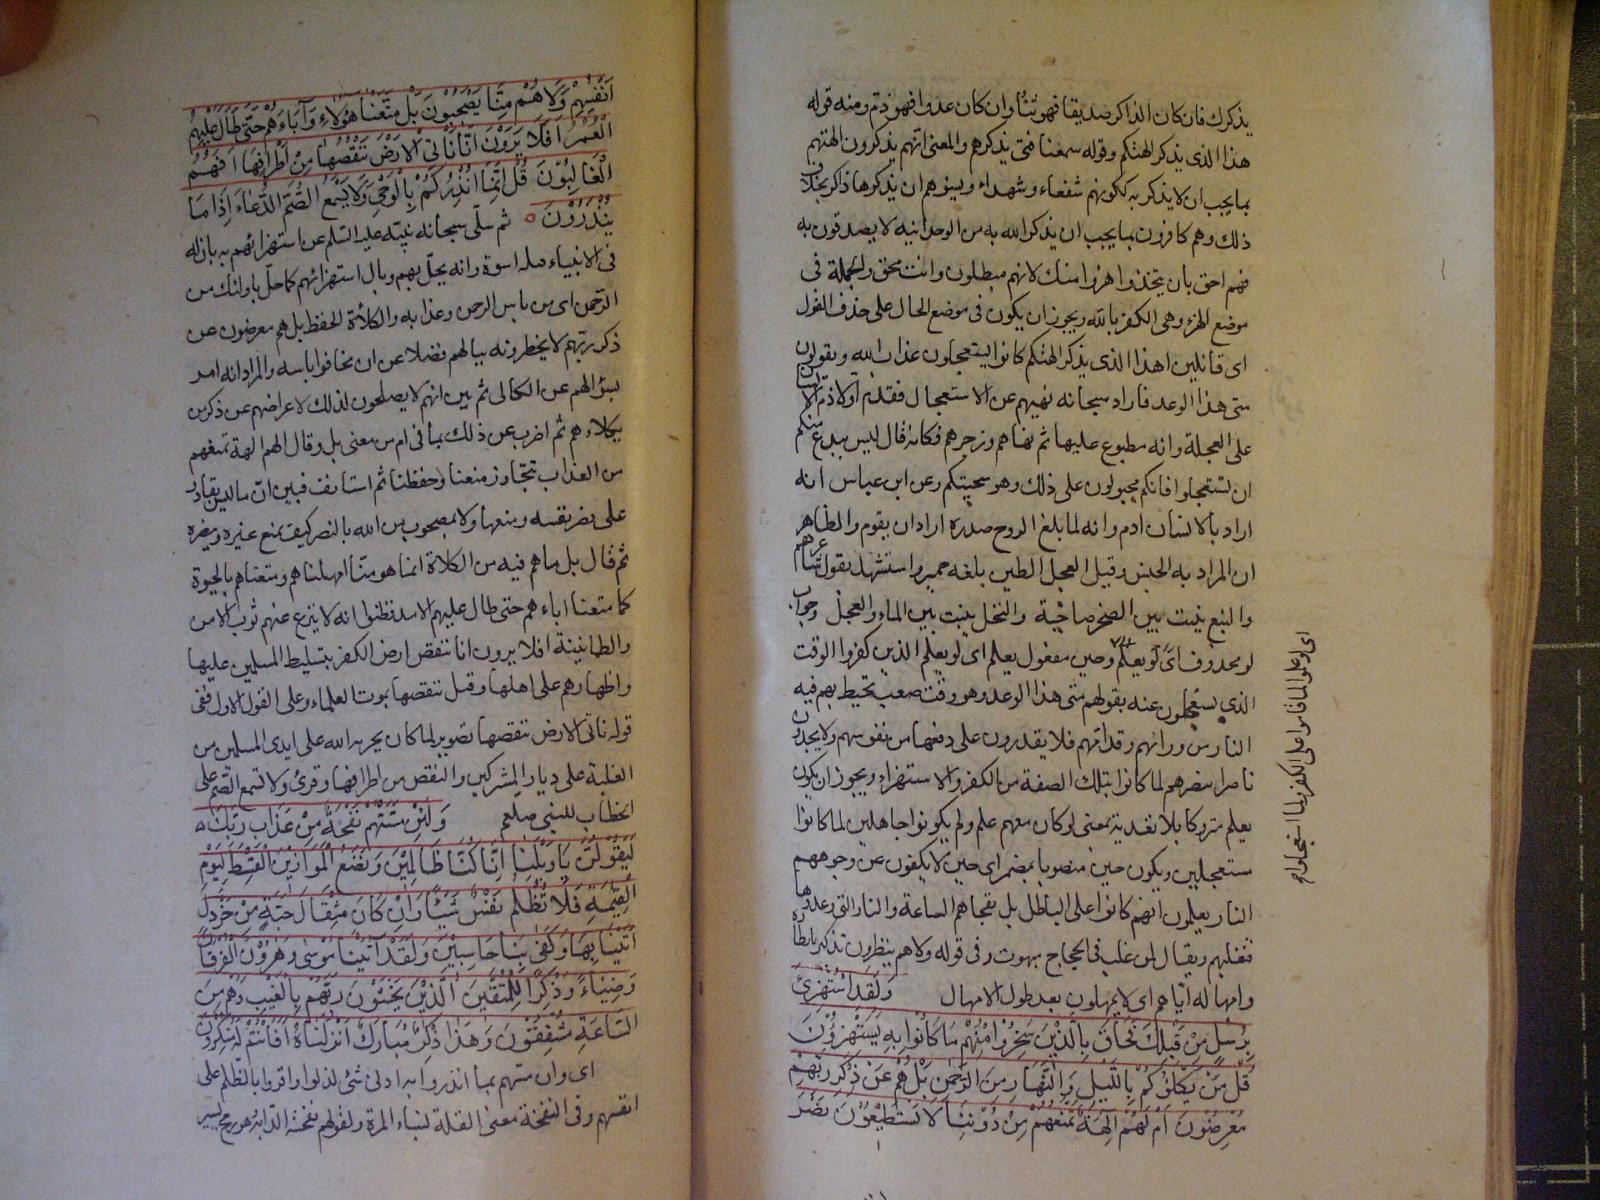 يذكرك فان كان الذاكر صديقا فهو ثناء وان كان عدوا فهو ذم ومنه قوله
هذا الذى يذكر الهتكم وقوله سمعنا فتى يذكرهم والمعنى انهم يذكرون الهتهم
بما يجب ان لا يذكر به ككونهم شفعاء وشهداء ويسوءهم ان يذكرها ذاكر بخلاف
ذلك وهم كافرون بما يجب ان يذكر الله به من الوحدانيه لا يصدقون به
فهم احق بان يتخذوا هزوا منك لانهم مبطلون وانت محق والجملة فى
موضع الهزؤ وهى الكفر بالله ويجوز ان يكون فى موضع الحال على حذف القول
اى قائلين اهذا الذى يذكر الهتكم كانوا يستعجلون عذاب الله ويقولون
متى هذا الوعد فاراد سبحانه نهيهم عن الاستعجال فقدم اولا ذم الانسان
على العجلة وانه مطبوع عليها ثم نهاهم وزجرهم فكانه قال ليس ببدع منكم
ان تستعجلوا فانكم مجبولون على ذلك وهو سجيتكم وعن ابن عباس انه
اراد بالانسان ادم وانه لما بلغ الروح صدره اراد ان يقوم والظاهر
ان المراد به الجنس وقيل العجل الطين بلغة حمير واستشهد بقول شاعرهم
والنبع ينبت بين الصخر ضاحية والنخل ينبت بين الماء والعجل وجواب
لو محذوف اى لو يعلم وحين مفعول يعلم اى لو يعلم الذين كفروا الوقت
الذى يستعجلون عنه بقولهم متى هذا الوعد وهو وقت صعب تحيط بهم فيه
النار من ورائهم وقدامهم فلا يقدرون على دفعها من نفوسهم ولا يجدون
ناصرا ينصرهم لما كانوا بتلك الصفة من الكفر والاستهزاء ويجوز ان يكون
يعلم متروكا بلا تعدية بمعنى لو كان معهم علم ولم يكونوا جاهلين لما كانوا
مستعجلين ويكون حين منصوبا بمضمر اى حين لا يكفون عن وجوههم
النار يعلمون انهم كانوا على الباطل بل تفجاهم الساعة والنار التى وعدوها
فتغلبهم ويقال لمن غلب فى الحجاج مبهوت وفى قوله ولا هم ينظرون تذكير بانظاره
وامهاله اياهم اى لا يمهلون بعد طول الامهال وَلَقَدِ اسْتُهْزِئَ
بِرُسُلٍ مِنْ قَبْلِكَ فَحَاقَ بِالَّذِيْنَ سَخِرُوا مِنْهُمْ مَا كَانُوا بِهِ يَسْتَهْزِؤُنَ
قُلْ مَنْ يَكْلَؤُكُمْ بِاللَّيْلِ وَالنَّهَارِ مِنَ الرَّحْمٰنِ بَلْ هُمْ عَنْ ذِكْرِ رَبِّهِمْ
مُعْرِضُونَ اَمْ لَهُمْ اٰلِهَةٌ تَمْنَعُهُمْ مِنْ دُوْنِنَا لَا يَسْتَطِيْعُوْنَ نَصْرَ
اى لو علموا لما قاموا على الكفر ولما استعجلوا
اَنْفُسِهِمْ وَلَا هُمْ مِنَّا يُصْحَبُوْنَ بَلْ مَتَّعْنَا هٰؤُلَاءِ وَاٰبَاءَهُمْ حَتّٰى طَالَ عَلَيْهِمُ
الْعُمُرُ اَفَلَا يَرَوْنَ اَنَّا نَاْتِى الْاَرْضَ نَنْقُصُهَا مِنْ اَطْرَافِهَا اَفَهُمُ
الْغَالِبُوْنَ قُلْ اِنَّمَا اُنْذِرُكُمْ بِالْوَحْىِ وَلَا يَسْمَعُ الصُّمُّ الدُّعَاءَ اِذَا مَا
يُنْذَرُوْنَ ثم سلّى سبحانه نبيّه عليه السّلم عن استهزائهم به بان له
فى الانبياء قبله اسوة وانه يحلّ بهم وبال استهزائهم كما حلّ باولئك من
الرحمن اى من باس الرحمن وعذابه والكلاءة الحفظ بل هم معرضون عن
ذكر ربهم لا يخطرونه ببالهم فضلا عن ان يخافوا باسه والمراد انه امر
بسؤالهم عن الكالى ثم بين انهم لا يصلحون لذلك لاعراضهم عن ذكر من
يكلاءهم ثم اضرب عن ذلك بما فى ام من معنى بل وقال الهم الهة تمنعهم
من العذاب تتجاوز منعنا وحفظنا ثم استانف فبين انّ ما ليس بقادر
على نصر نفسه ومنعها ولا بمصحوب من الله بالنصر كيف يمنع غيره وينصره
ثم قال بل ما هم فيه من الكلاءة انما هو منّا امهلناهم ومتعناهم بالحيوة
كما متعنا اباءهم حتى طال عليهم الامد فظنوا انه لا ينزع عنهم ثوب الامن
والطمانينة افلا يرون انا ننقص ارض الكفر بتسليط المسلمين عليها
واظهارهم على اهلها وقيل ننقصها بموت العلماء وعلى القول الاول ففى
قوله ناتى الارض ننقصها تصوير لما كان يجريه الله على ايدى المسلمين من
الغلبة على ديار المشركين والنقص من اطرافها وقرئ ولا تسمع الصّم على
الخطاب للنبى صلعم وَلَئِنْ مَسَّتْهُمْ نَفْحَةٌ مِنْ عَذَابِ رَبِّكَ
لَيَقُوْلُنَّ يَا وَيْلَنَا اِنَّا كُنَّا ظَالِمِيْنَ وَنَضَعُ الْمَوَازِيْنَ الْقِسْطَ لِيَوْمِ
الْقِيٰمَةِ فَلَا تُظْلَمُ نَفْسٌ شَيْئًا وَاِنْ كَانَ مِثْقَالَ حَبَّةٍ مِنْ خَرْدَلٍ
اَتَيْنَا بِهَا وَكَفٰى بِنَا حَاسِبِيْنَ وَلَقَدْ اٰتَيْنَا مُوْسٰى وَهٰرُوْنَ الْفُرْقَانَ
وَضِيَاءً وَذِكْرًا لِلْمُتَّقِيْنَ الَّذِيْنَ يَخْشَوْنَ رَبَّهُمْ بِالْغَيْبِ وَهُمْ مِنَ
السَّاعَةِ مُشْفِقُوْنَ وَهٰذَا ذِكْرٌ مُبَارَكٌ اَنْزَلْنَاهُ اَفَاَنْتُمْ لَهُ مُنْكِرُوْنَ
اى وان مسّهم بما انذروا به ادنى شئ لذلوا واقروا بالظلم على
انفسهم وفى النفخة معنى القلة لبناء المرة ولقولهم نفحته الدابة وهو ريح يسير